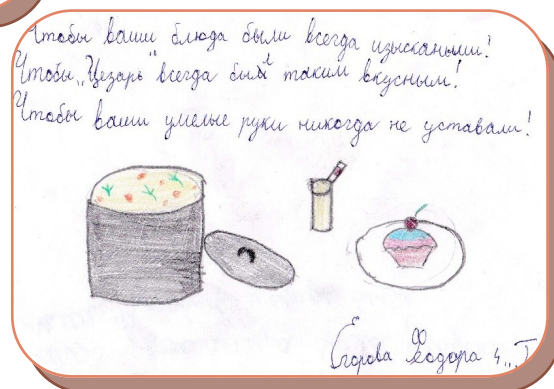 Чтобы ваши блюда были всегда изысканыши!
Чтобы „Цезарь" всегда был таким вкусным!
Чтобы ваши умелые руки никогда не уставали!
Егорова Федора 4 „Г